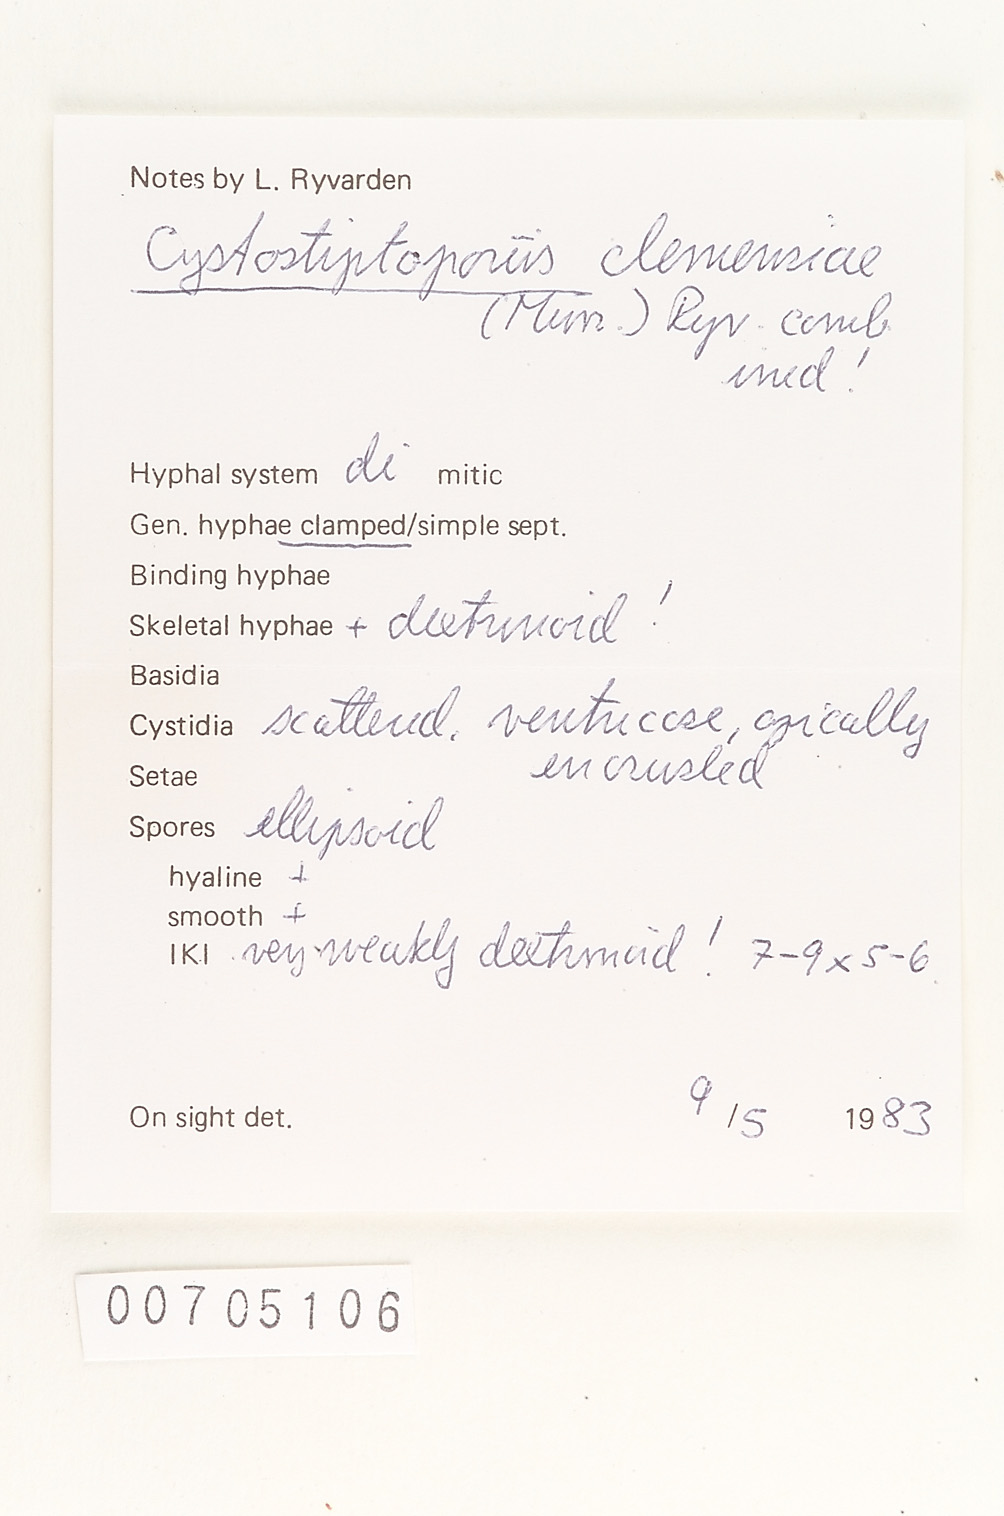 Notes by L. Ryvarden
Cystostiptoporus clemensiae
(Murr.) Ryv. comb
ined!
Hyphal system di mitic
Gen. hyphae clamped/simple sept.
Binding hyphae
Skeletal hyphae + dextrinoid!
Basidia
Cystidia scattered, ventricose, apically
encrusted
Setae
Spores ellipsoid
hyaline +
smooth +
IKI very weakly dextrinoid! 7-9x5-6
On sight det. 9/5 1983
00705106